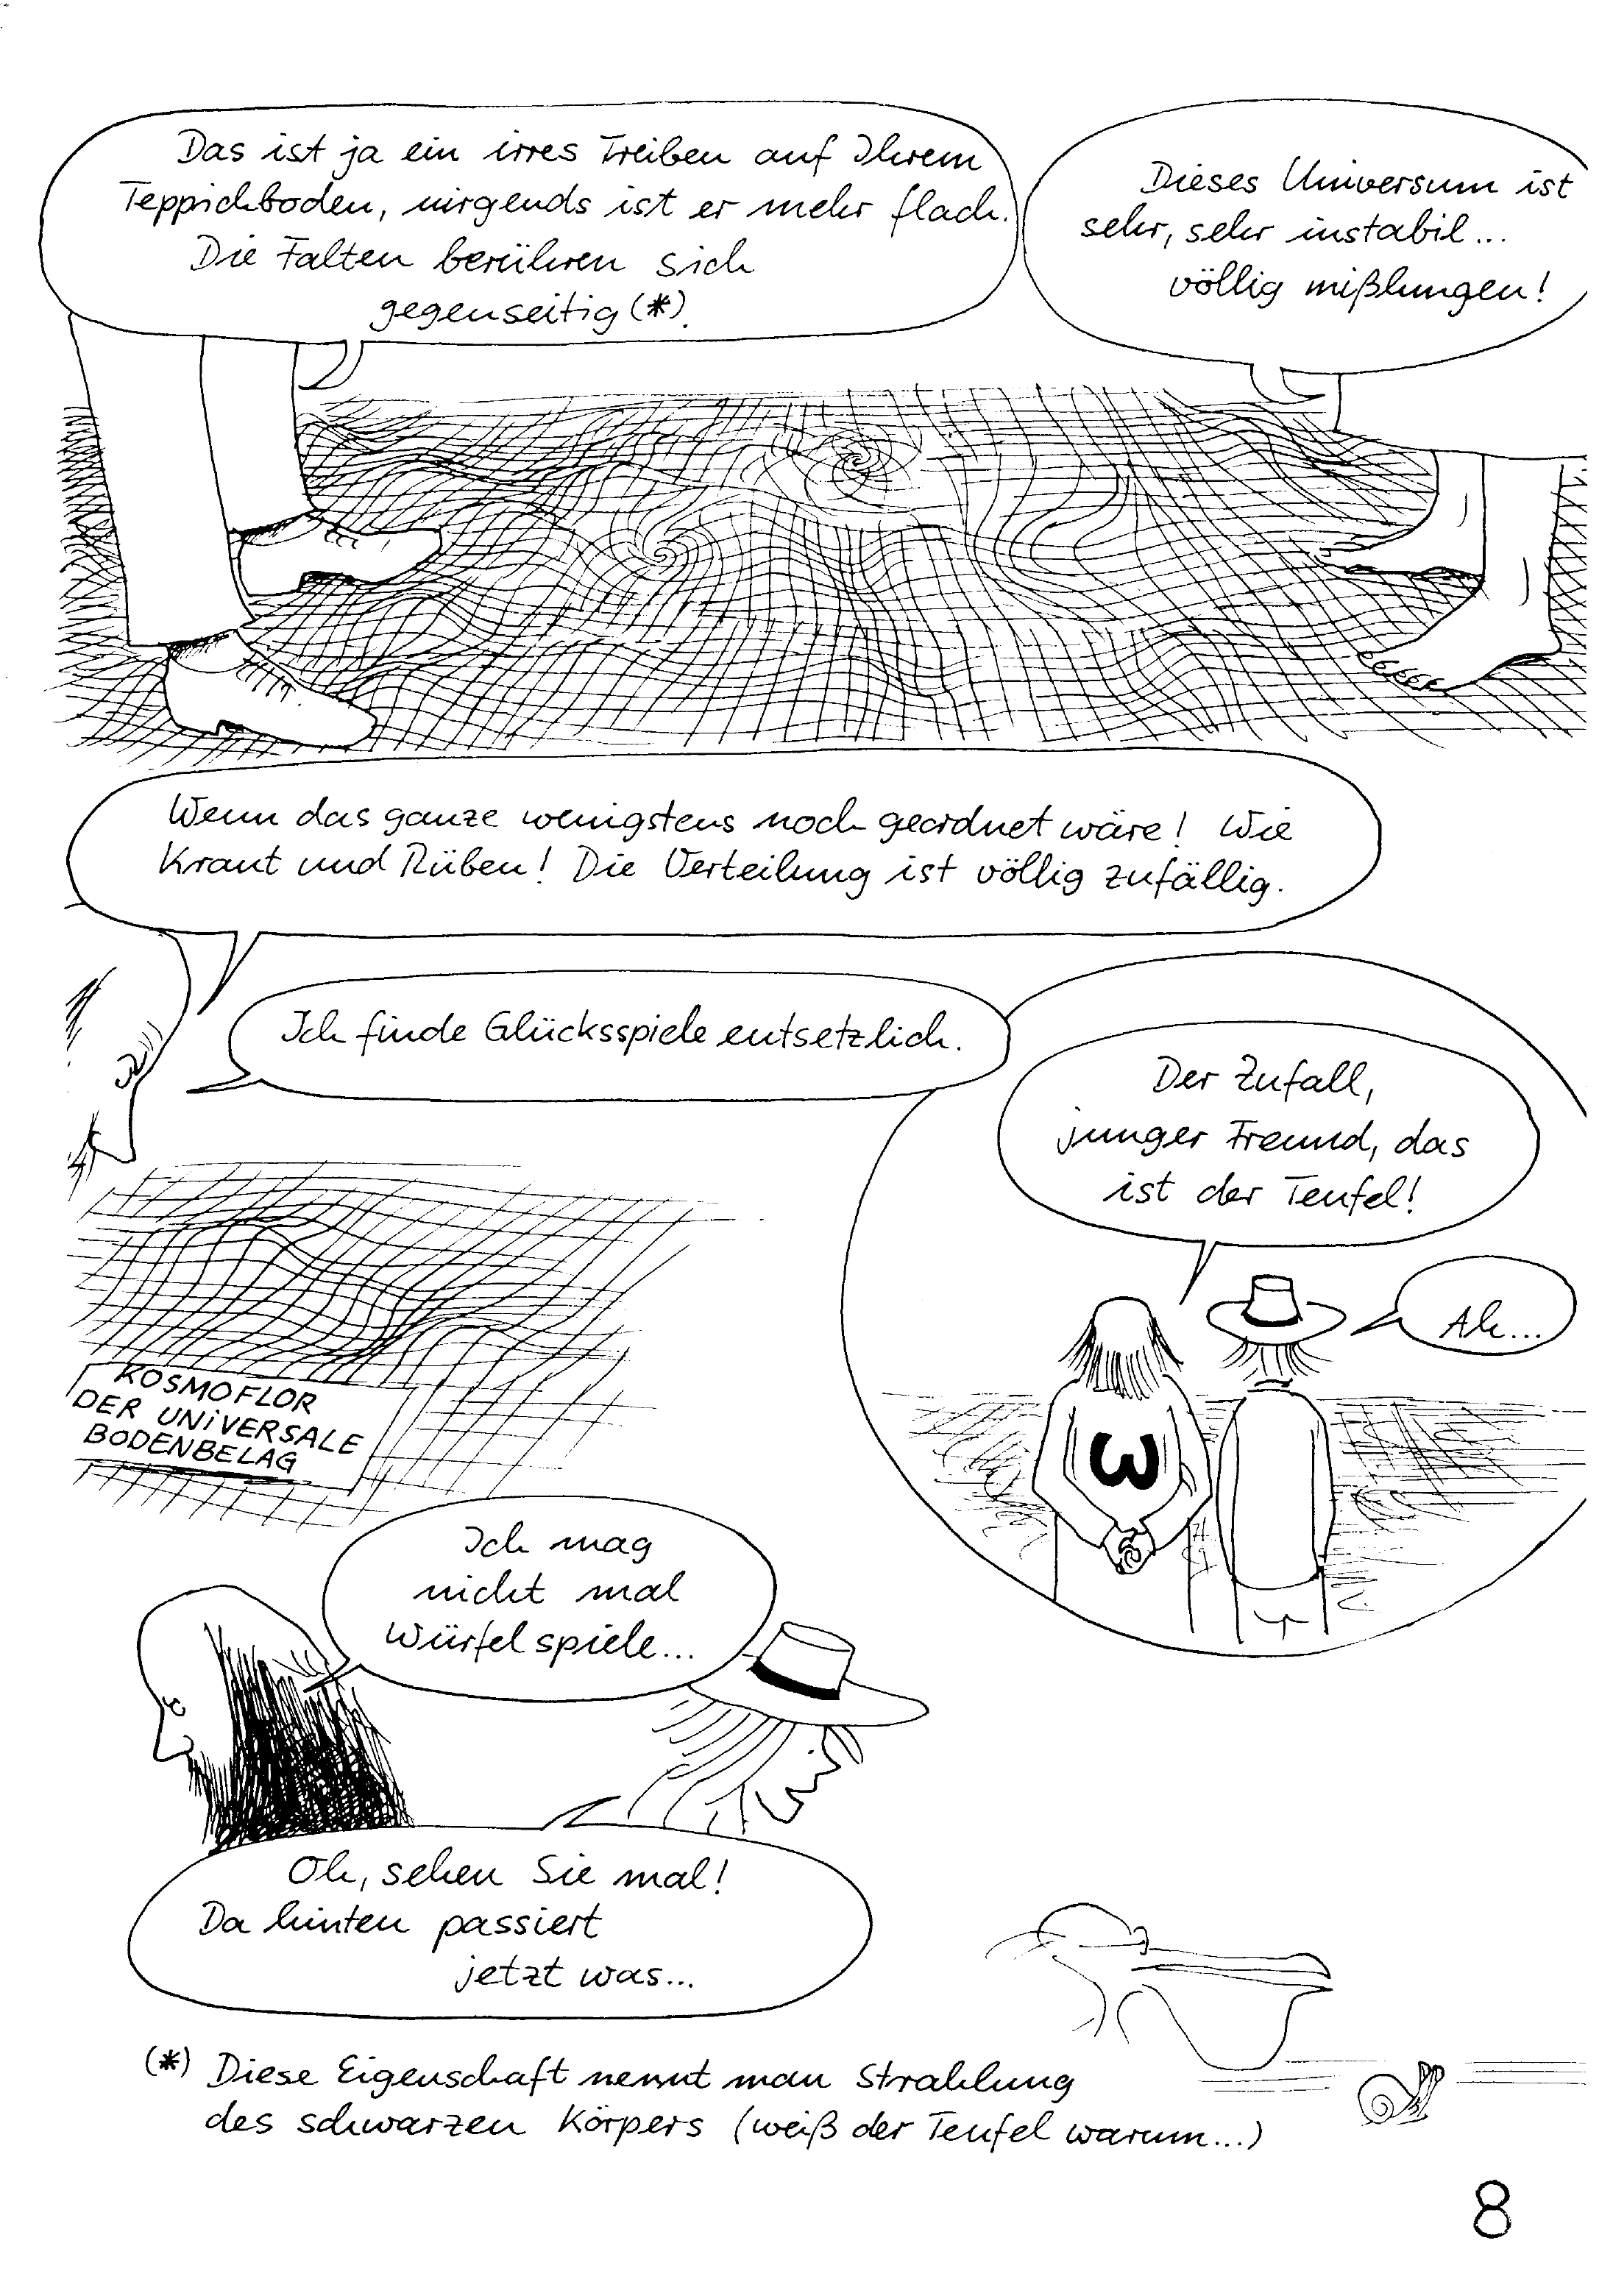 Das ist ja ein irres Treiben auf Ihrem
Teppichboden, nirgends ist er mehr flach.
Die Falten berühren sich
gegenseitig (*).
Dieses Universum ist
sehr, sehr instabil...
völlig mißlungen!
Wenn das ganze wenigstens noch geordnet wäre! Wie
Kraut und Rüben! Die Verteilung ist völlig zufällig.
Ich finde Glücksspiele entsetzlich.
Der Zufall,
junger Freund, das
ist der Teufel!
Ah...
ω
KOSMOFLOR
DER UNiVERSALE
BODENBELAG
Ich mag
nicht mal
Würfelspiele...
Oh, sehen Sie mal!
Da hinten passiert
jetzt was...
(*) Diese Eigenschaft nennt man Strahlung
des schwarzen Körpers (weiß der Teufel warum...)
8